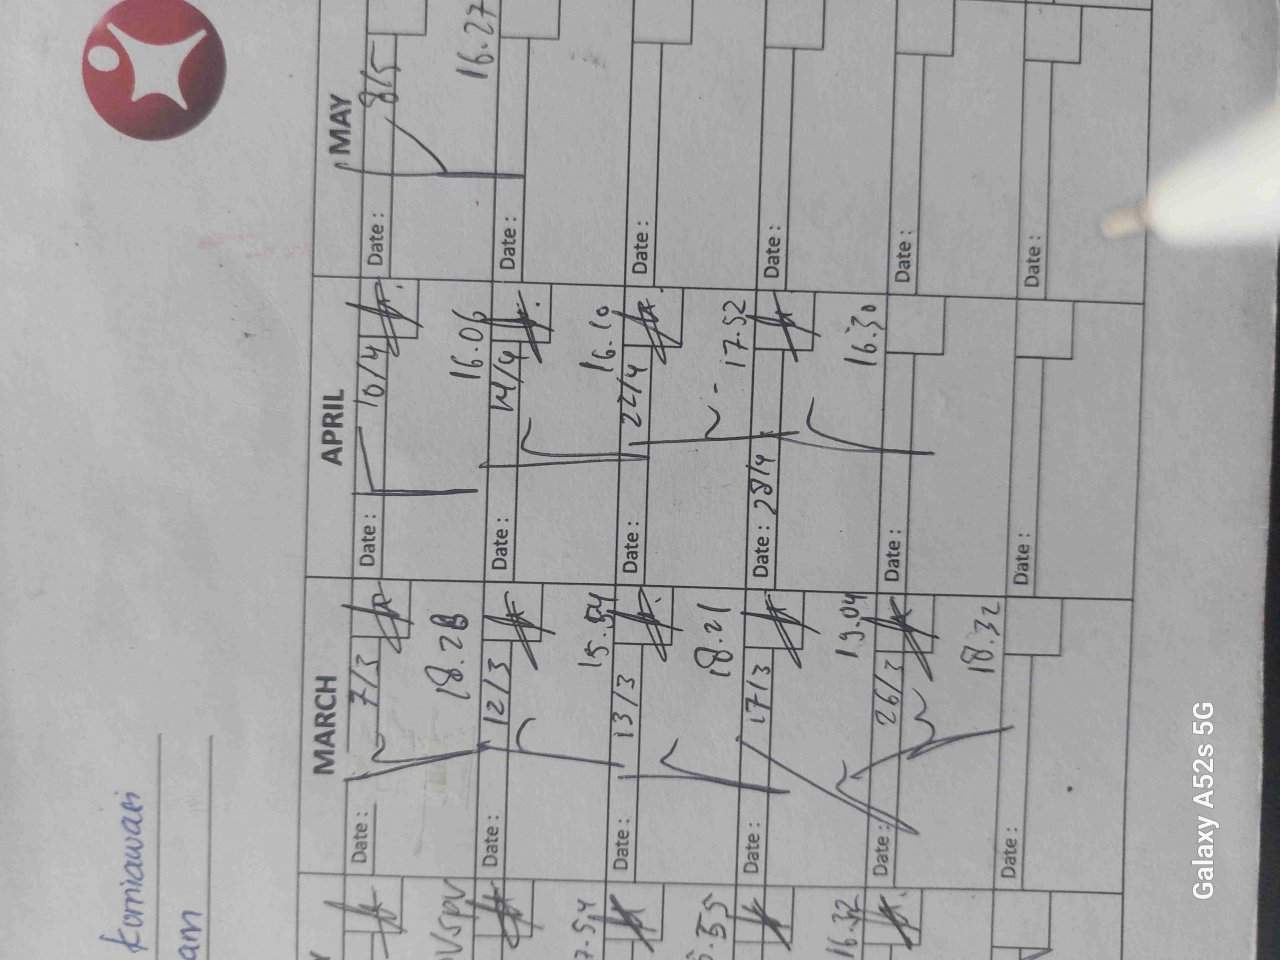 korniawati
am
MARCH
APRIL
MAY
Date: 7/3
Date: 10/4
Date: 8/5
18.28
16.06
16.27
Date: 12/3
Date: 14/4
Date:
15.54
16.10
Date: 13/3
Date: 22/4
Date:
18.21
17.52
Date: 17/3
Date: 28/4
Date:
19.04
16.30
16.32
Date: 26/3
Date:
Date:
18.32
Date:
Date:
Date:
Galaxy A52s 5G